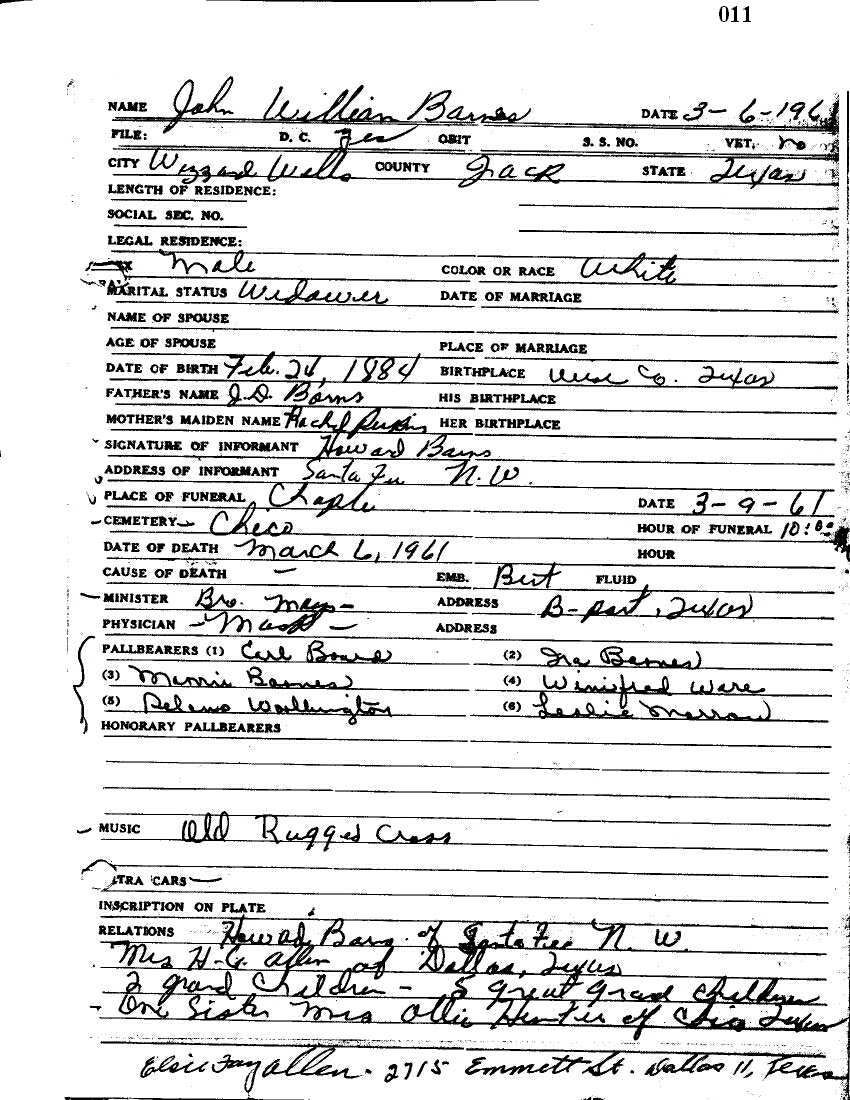 011
NAME John William Barnes DATE 3-6-196
FILE: D. C. Yes OBIT S. S. NO. VET. no
CITY Wizzard Wells COUNTY Jack STATE Texas
LENGTH OF RESIDENCE:
SOCIAL SEC. NO.
LEGAL RESIDENCE:
Male COLOR OR RACE White
MARITAL STATUS Widower DATE OF MARRIAGE
NAME OF SPOUSE
AGE OF SPOUSE PLACE OF MARRIAGE
DATE OF BIRTH Feb. 24, 1884 BIRTHPLACE Wise Co. Texas
FATHER'S NAME J.D. Barns HIS BIRTHPLACE
MOTHER'S MAIDEN NAME Rachel HER BIRTHPLACE
SIGNATURE OF INFORMANT Howard Barns
ADDRESS OF INFORMANT Santa Fee N.W.
PLACE OF FUNERAL Chaple DATE 3-9-61
CEMETERY Chico HOUR OF FUNERAL 10:00
DATE OF DEATH March 6, 1961 HOUR
CAUSE OF DEATH — EMB. Burt FLUID
MINISTER Bro. Mays - ADDRESS B-port, Texas
PHYSICIAN - - ADDRESS
PALLBEARERS (1) Carl Board (2) Ira Barnes
(3) Barnes (4) Winifred Ware
(5) Delmo (6) Leslie Morrow
HONORARY PALLBEARERS
MUSIC Old Rugged Cross
TRA CARS
INSCRIPTION ON PLATE
RELATIONS Howard Barns of Santa Fee N. W.
Mrs H.G. Allen of Dallas, Texas
2 grand Children - 5 great grand children
One Sister Mrs Ollie Hunter of Chico Texas
Elsie Fay Allen - 2715 Emmett St. Dallas 11, Texas